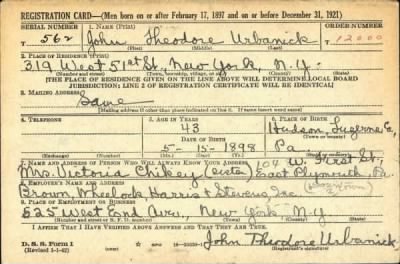 REGISTRATION CARD—(Men born on or after February 17, 1897 and on or before December 31, 1921)
SERIAL NUMBER 1. NAME (Print) ORDER NUMBER
T 562 John Theodore Urbanick 12000
(First) (Middle) (Last)
2. PLACE OF RESIDENCE (Print)
319 West 51st St., New York, N.Y.
(Number and street) (Town, township, village, or city) (County) (State)
[THE PLACE OF RESIDENCE GIVEN ON THE LINE ABOVE WILL DETERMINE LOCAL BOARD
JURISDICTION; LINE 2 OF REGISTRATION CERTIFICATE WILL BE IDENTICAL]
3. MAILING ADDRESS
Same
[Mailing address if other than place indicated on line 2. If same insert word same]
4. TELEPHONE 5. AGE IN YEARS 6. PLACE OF BIRTH
43 Hudson, Luzerne
DATE OF BIRTH (Town or county)
5-15-1898 Pa
(Exchange) (Number) (Mo.) (Day) (Yr.) (State or country)
7. NAME AND ADDRESS OF PERSON WHO WILL ALWAYS KNOW YOUR ADDRESS 109 W. First St.,
Mrs. Victoria Chikey (Sister) East Plymouth Pa.
8. EMPLOYER'S NAME AND ADDRESS
Brown Wheelock Harris & Stevens, Inc.
9. PLACE OF EMPLOYMENT OR BUSINESS
525 West End Ave., New York N.Y
(Number and street or R. F. D. number) (Town) (County) (State)
I AFFIRM THAT I HAVE VERIFIED ABOVE ANSWERS AND THAT THEY ARE TRUE.
D. S. S. Form 1
(Revised 1-1-42) (over) John Theodore Urbanick
(Registrant's signature)